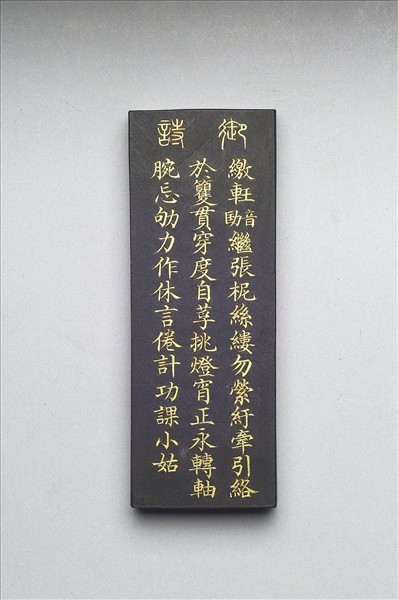 御詩
繳軠音劻繼張柅絲縷勿縈紆牽引絡
於籰貫穿度自莩挑燈宵正永轉軸
腕忘劬力作休言倦計功課小姑